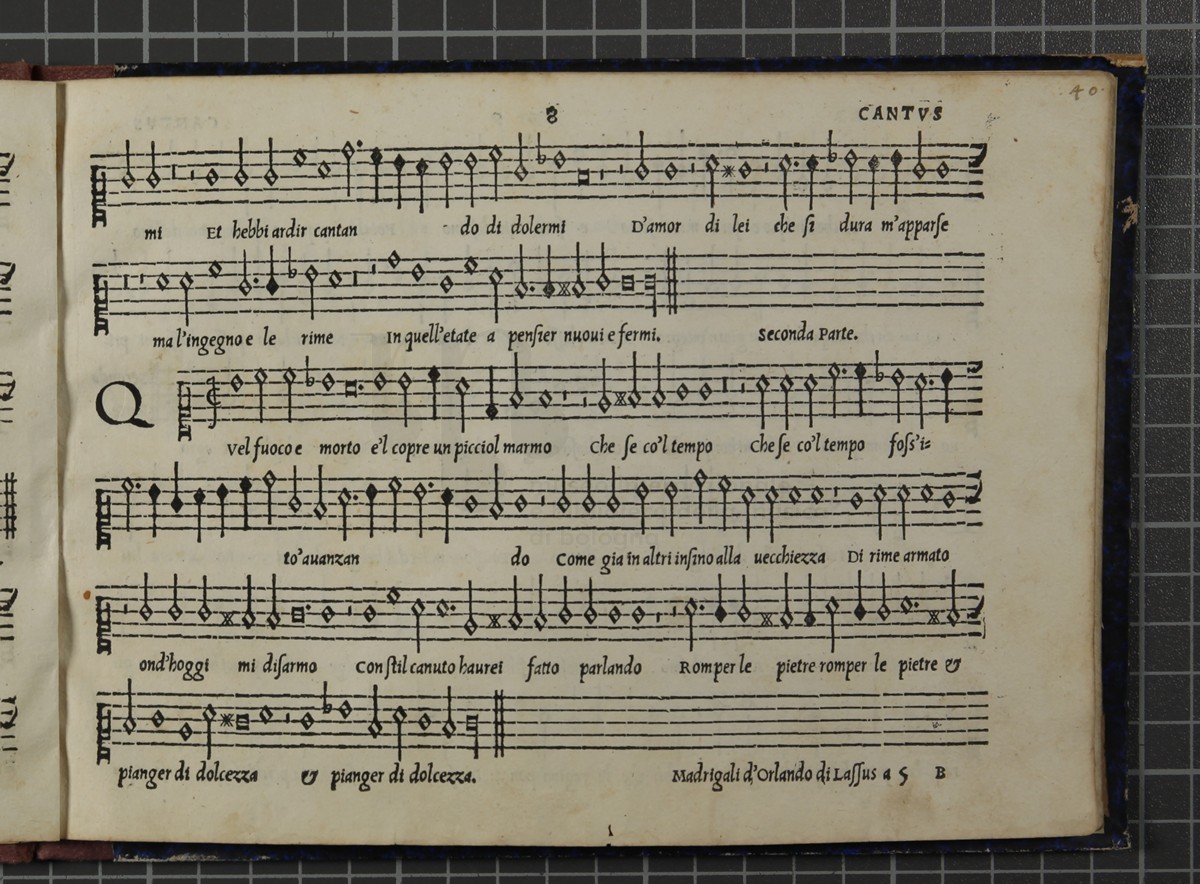 40
8 CANTVS
mi Et hebbi ardir cantan do di dolermi D'amor di lei che si dura m'apparse
ma l'ingegno e le rime In quell'etate a pensier nuoui e fermi. Seconda Parte.
Q Vel fuoco e morto e'l copre un picciol marmo Che se co'l tempo Che se co'l tempo foss'i=
to'auanzan do Come gia in altri insino alla uecchiezza Di rime armato
ond'hoggi mi disarmo Con stil canuto haurei fatto parlando Romper le pietre romper le pietre &
pianger di dolcezza & pianger di dolcezza. Madrigali d'Orlando di Lassus a 5 B